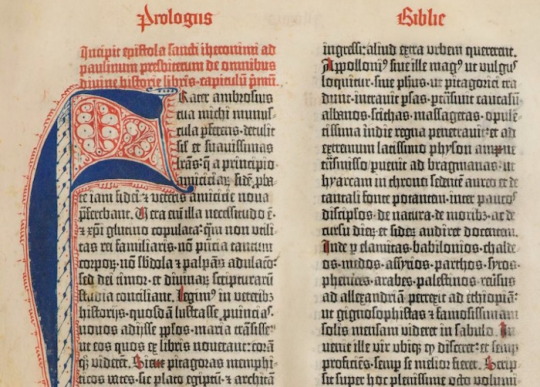 Prologus
Biblie
Incipit epistola sancti iheronimi ad
paulinum presbiterum de omnibus
divine historie libris·capitulū pmū.
Frater ambrosius
tua michi munus-
cula pferens·detulit
sil' et suavissimas
lrās·q̄ a principio
amiciciaꝝ·fidē pba-
te iam fidei et veteris amicicie nova
pferebant. Vera eni illa necessitudo ē·
et xp̄i glutino copulata·qm̄ non utili-
tas rei familiaris·nō pn̄cia tantum
corpoꝝ·nō sbdola et palpās adulacō·
sed dei timor·et divinaꝝ scripturarū
studia conciliant. Legimꝰ in veteribꝫ
historijs·quosdā lustrasse ꝓvincias·
novos adijsse pplos·maria trāsisse·
ut eos quos ex libris noverant: corā
qꝫ viderēt. Sicut pitagoras memphi-
ticos vates·sic plato egiptū·et architā
ingressi: aliud extra urbem quererent.
Appollonꝰ sive ille magꝰ ut vulgꝰ
loquitur·sive phus·ut pitagorici tra-
dunt·intravit psas·ptrāsivit caucasū·
albanos·scithas·massagetas·opulē-
tissima indie regna penetravit: et ad
extremum latissimo physon amne
trāsmisso puenit ad bragmanas: ut
hyarcam in throno sedentē aureo et de
tantali fonte potantem·inter paucos
discipulos·de natura·de moribꝫ ac de
cursu dierū et sideꝝ audiret docentem.
Inde p elamitas·babilonios·chalde-
os·medos·assyrios·parthos·syros·
phenices·arabes·palestinos·reversus
ad allexandriā: perrexit ad ethiopiā·
ut gignosophistas et famosissimam
solis mensam videret in sabulo. In-
venit ille vir ubiqꝫ qd disceret: et semp
proficiēs·semp se melior fieret. Scrip-
sit super hoc plenissime octo volumi-